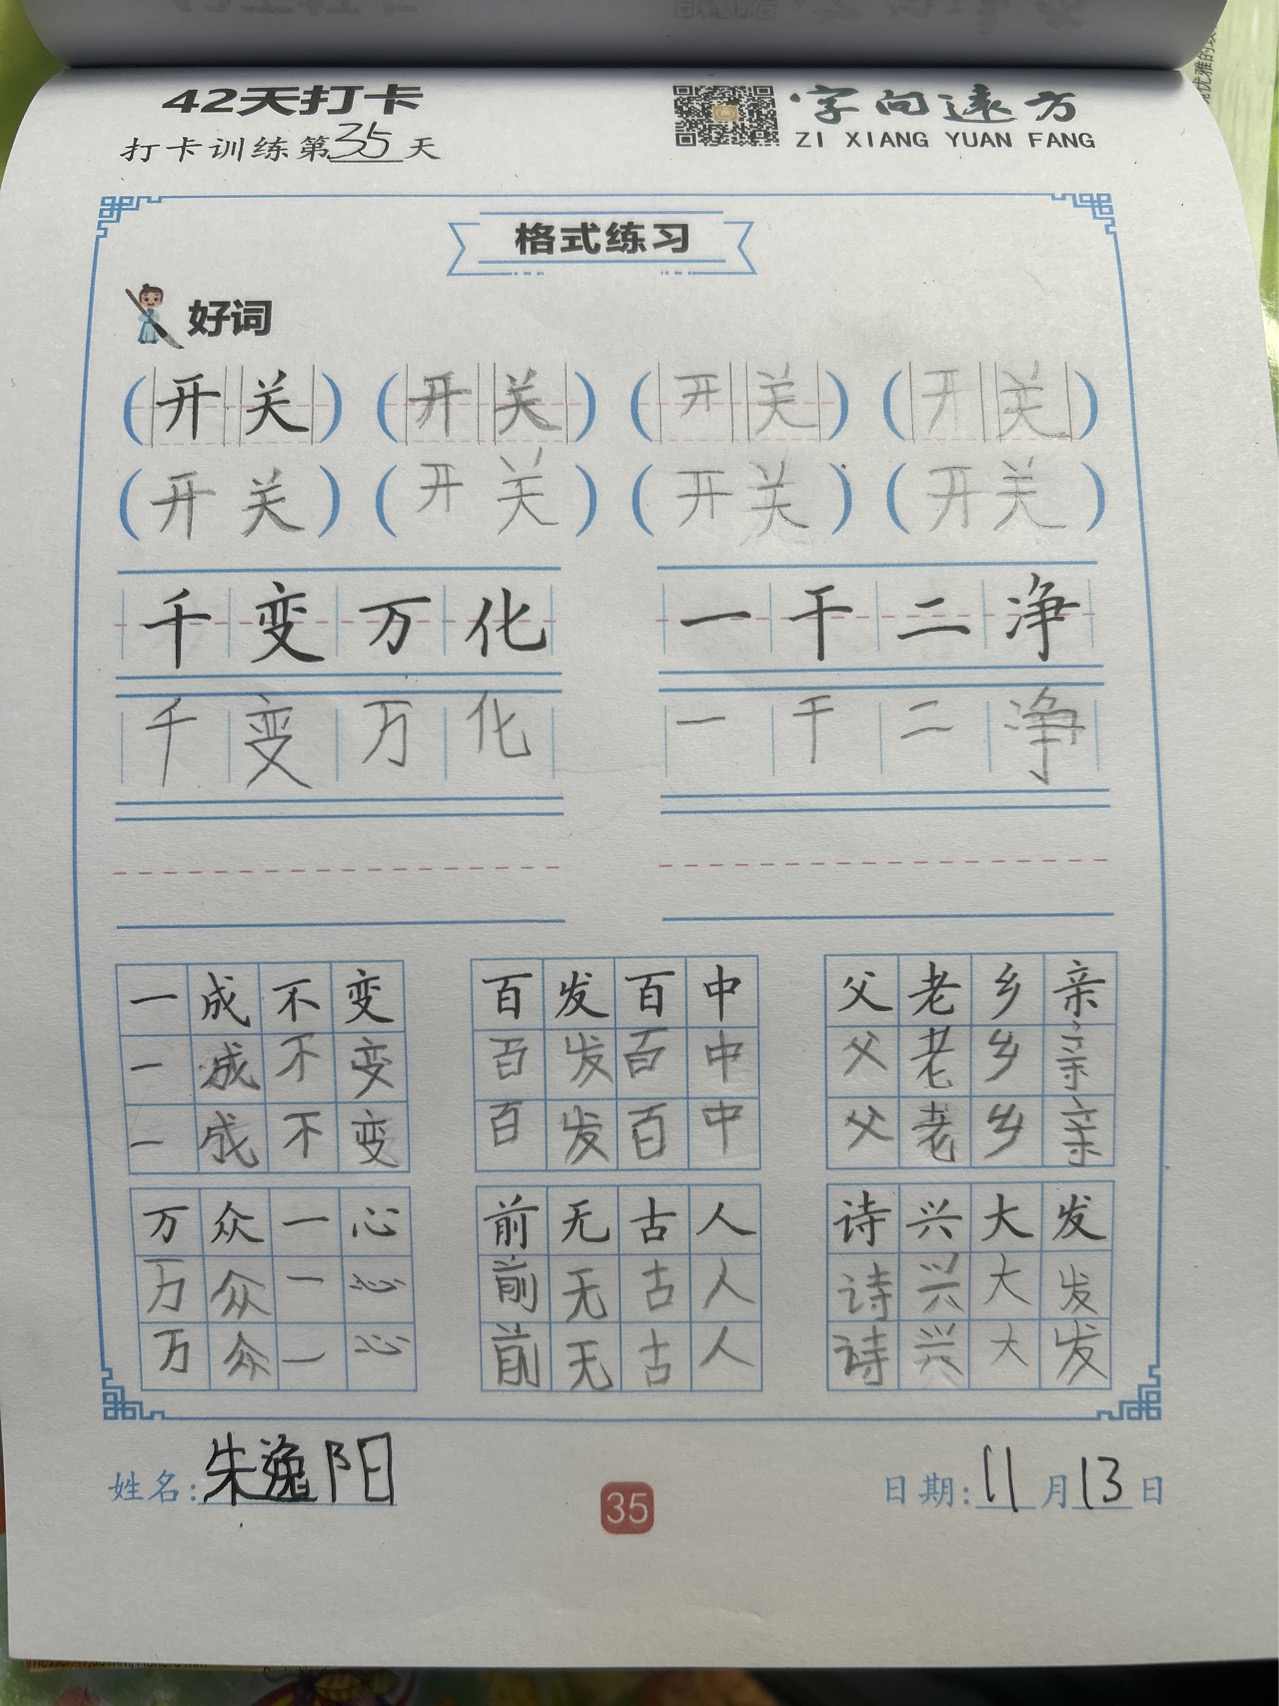 42天打卡
打卡训练第35天
字向远方
ZI XIANG YUAN FANG
格式练习
好词
(开关) (开关) (开关) (开关)
(开关) (开关) (开关) (开关)
千变万化 一干二净
千变万化 一干二净
一成不变 百发百中 父老乡亲
一成不变 百发百中 父老乡亲
一成不变 百发百中 父老乡亲
万众一心 前无古人 诗兴大发
万众一心 前无古人 诗兴大发
万众一心 前无古人 诗兴大发
姓名:朱逸阳 35 日期:11月13日